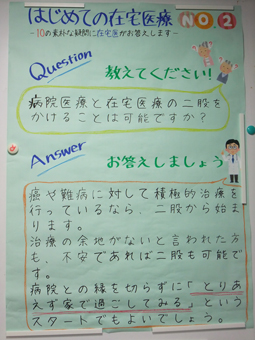 はじめての在宅医療 NO2
～10の素朴な疑問に在宅医がお答えします～
Question
教えてください!
病院医療と在宅医療の二股を
かけることは可能ですか?
Answer
お答えしましょう
癌や難病に対して積極的治療を
行っているなら、二股から始ま
ります。
治療の余地がないと言われた方
も、不安であれば二股も可能で
す。
病院との縁を切らずに「とりあ
えず家で過ごしてみる」という
スタートでもよいでしょう。